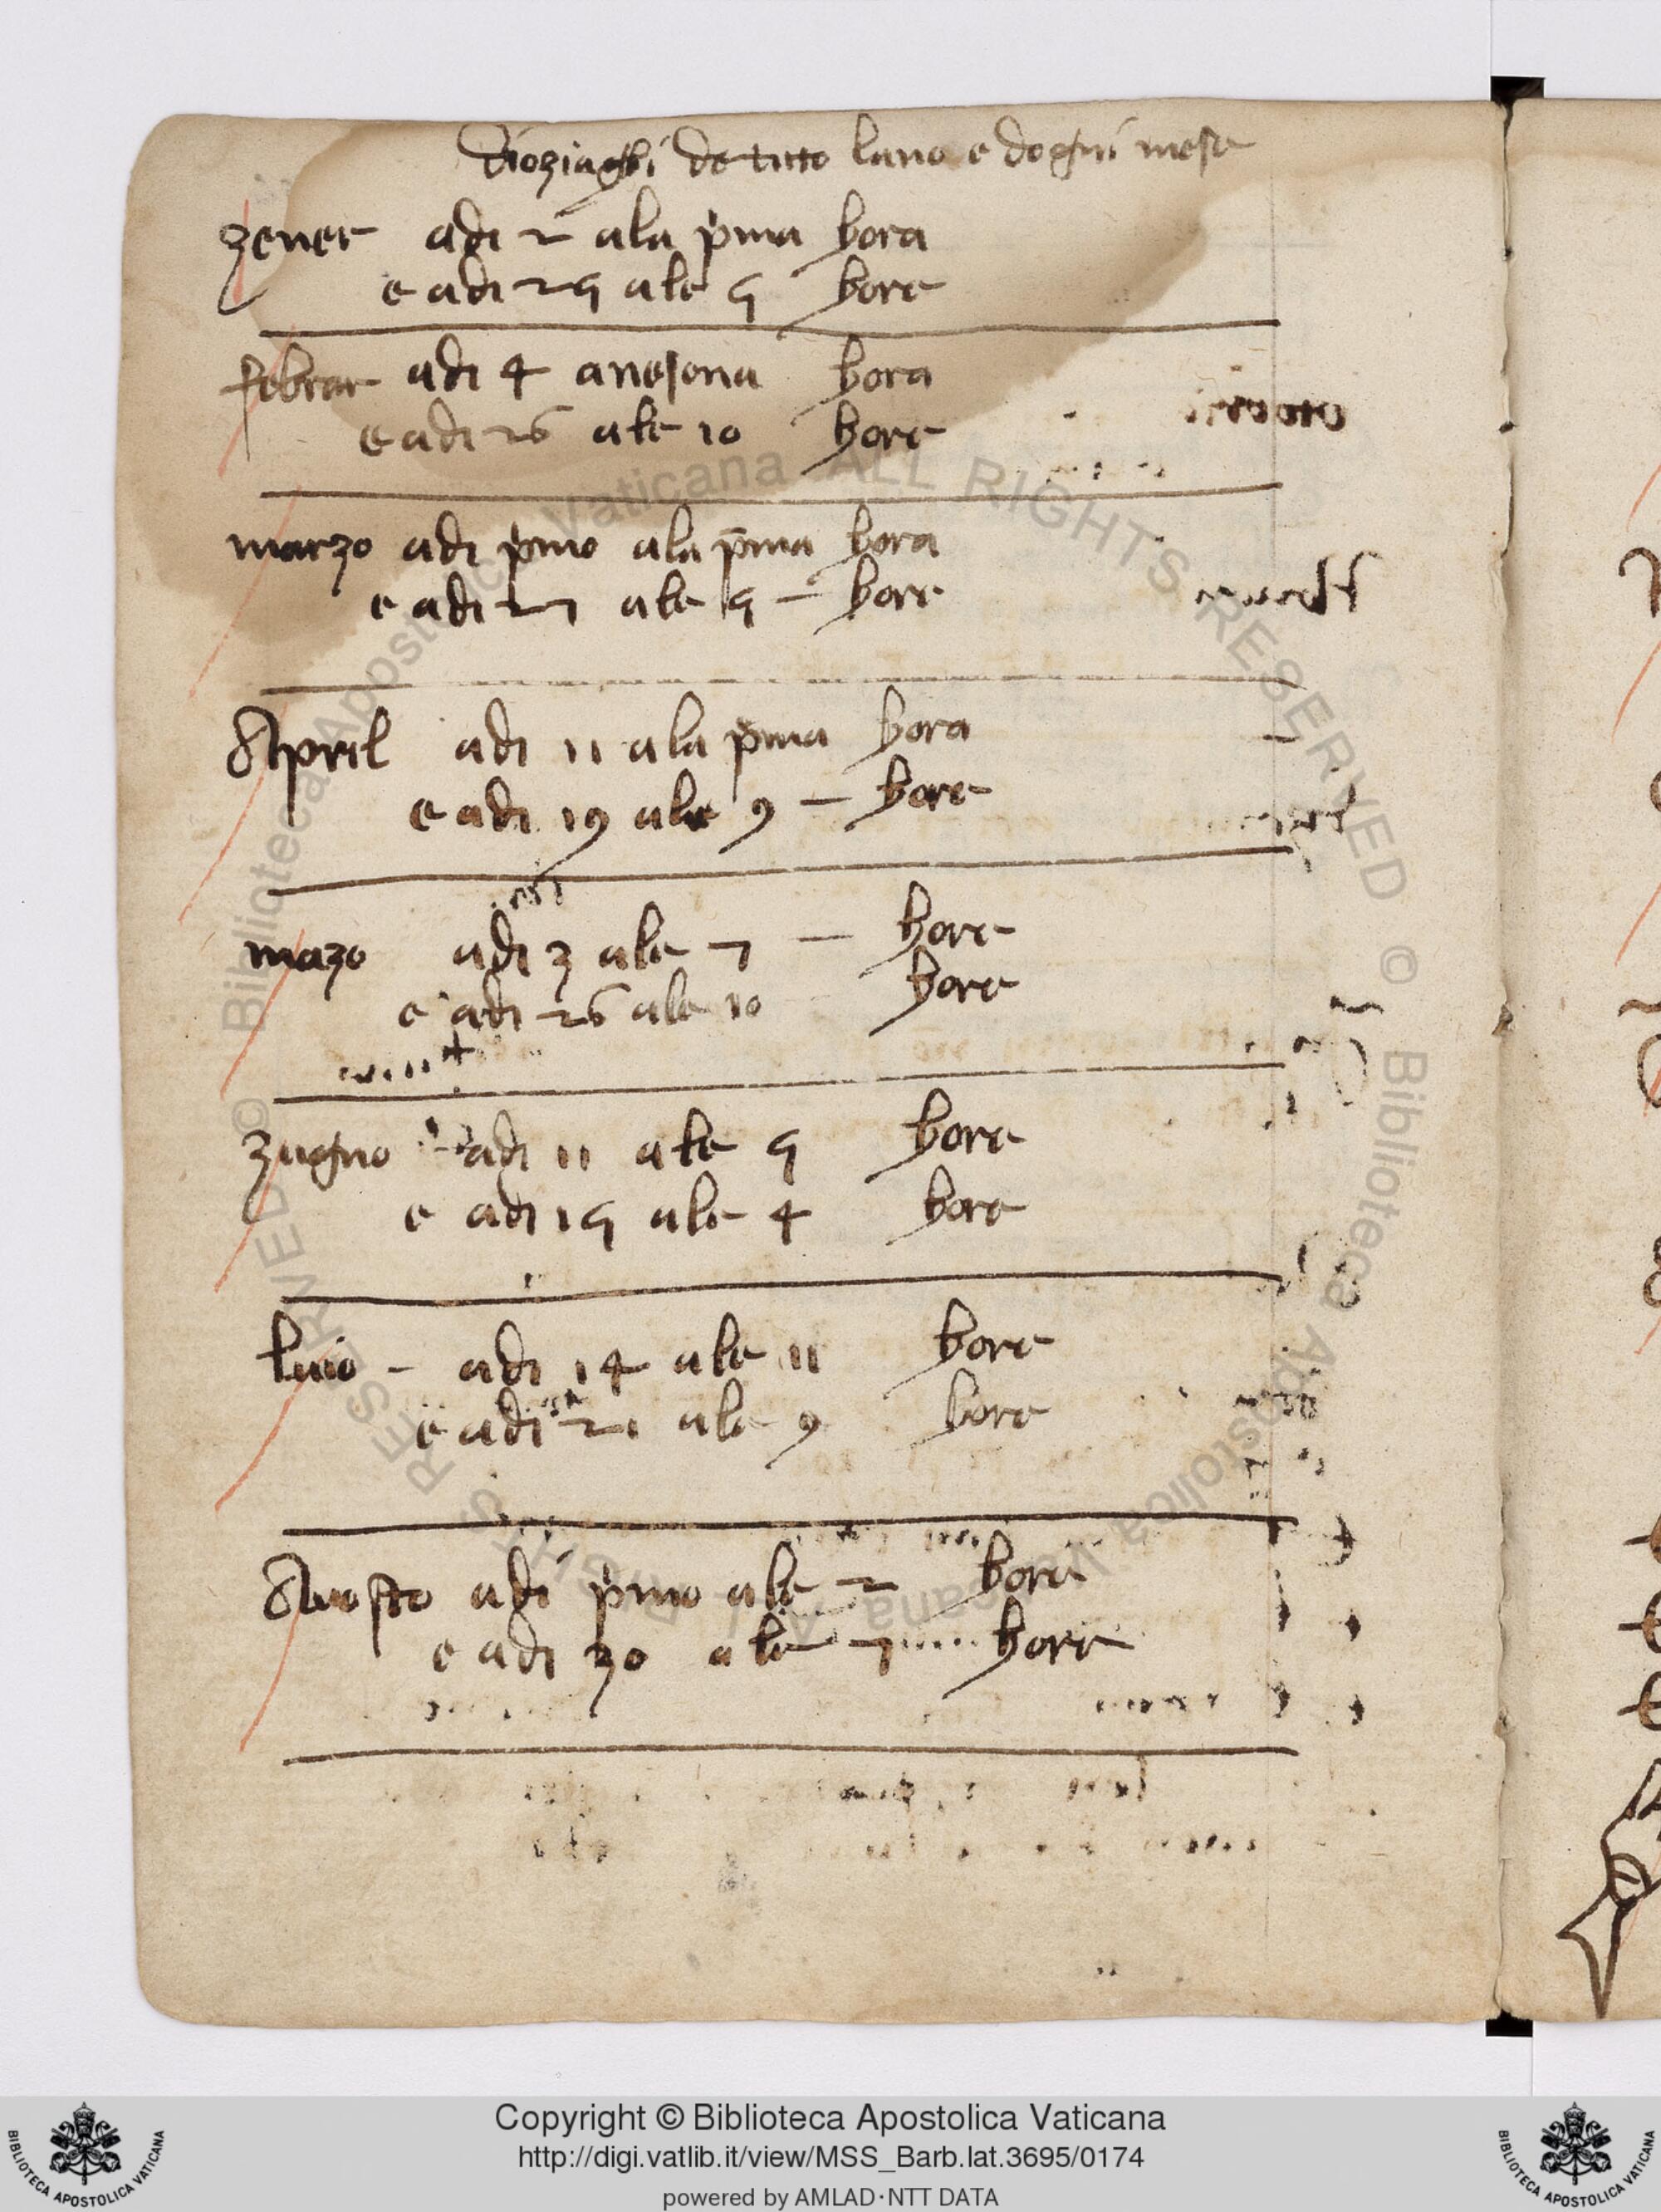 dioziaghi de tuto lano e dogni mese
zener adi 2 ala pima hora
e adi 25 ale 5 hore
febrar adi 4 a nesona hora
e adi 26 ale 10 hore
marzo adi pimo ala p̄ma hora
e adi 27 ale 5 – hore
April adi 11 ala pima hora
e adi 19 ale 9 – hore
mazo adi 3 ale 7 – hore
e adi 26 ale 10 hore
zugno adi 11 ale 5 hore
e adi 15 ale 4 hore
luio – adi 14 ale 11 hore
e adi 21 ale 9 hore
Auosto adi pimo ale 2 hore
e adi 30 ale 7 hore
© Biblioteca Apostolica Vaticana ALL RIGHTS RESERVED
© Biblioteca Apostolica Vaticana ALL RIGHTS RESERVED
Copyright © Biblioteca Apostolica Vaticana
http://digi.vatlib.it/view/MSS_Barb.lat.3695/0174
powered by AMLAD·NTT DATA
BIBLIOTECA APOSTOLICA VATICANA
BIBLIOTECA APOSTOLICA VATICANA